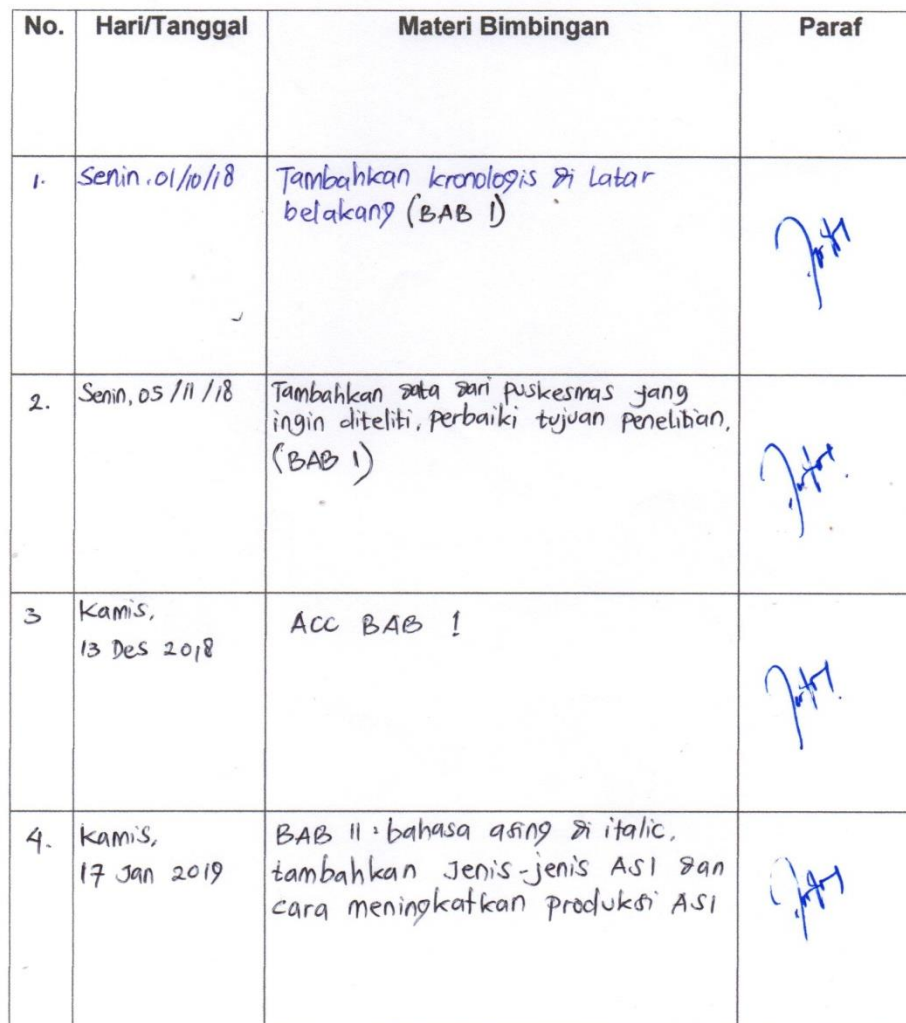 No. Hari/Tanggal Materi Bimbingan Paraf
1. Senin, 01/10/18 Tambahkan kronologis di Latar
belakang (BAB 1)
2. Senin, 05/11/18 Tambahkan data dari puskesmas yang
ingin diteliti, perbaiki tujuan penelitian,
(BAB 1)
3 Kamis, ACC BAB 1
13 Des 2018
4. Kamis, BAB II : bahasa asing di italic,
17 Jan 2019 tambahkan Jenis-jenis ASI dan
cara meningkatkan produksi ASI